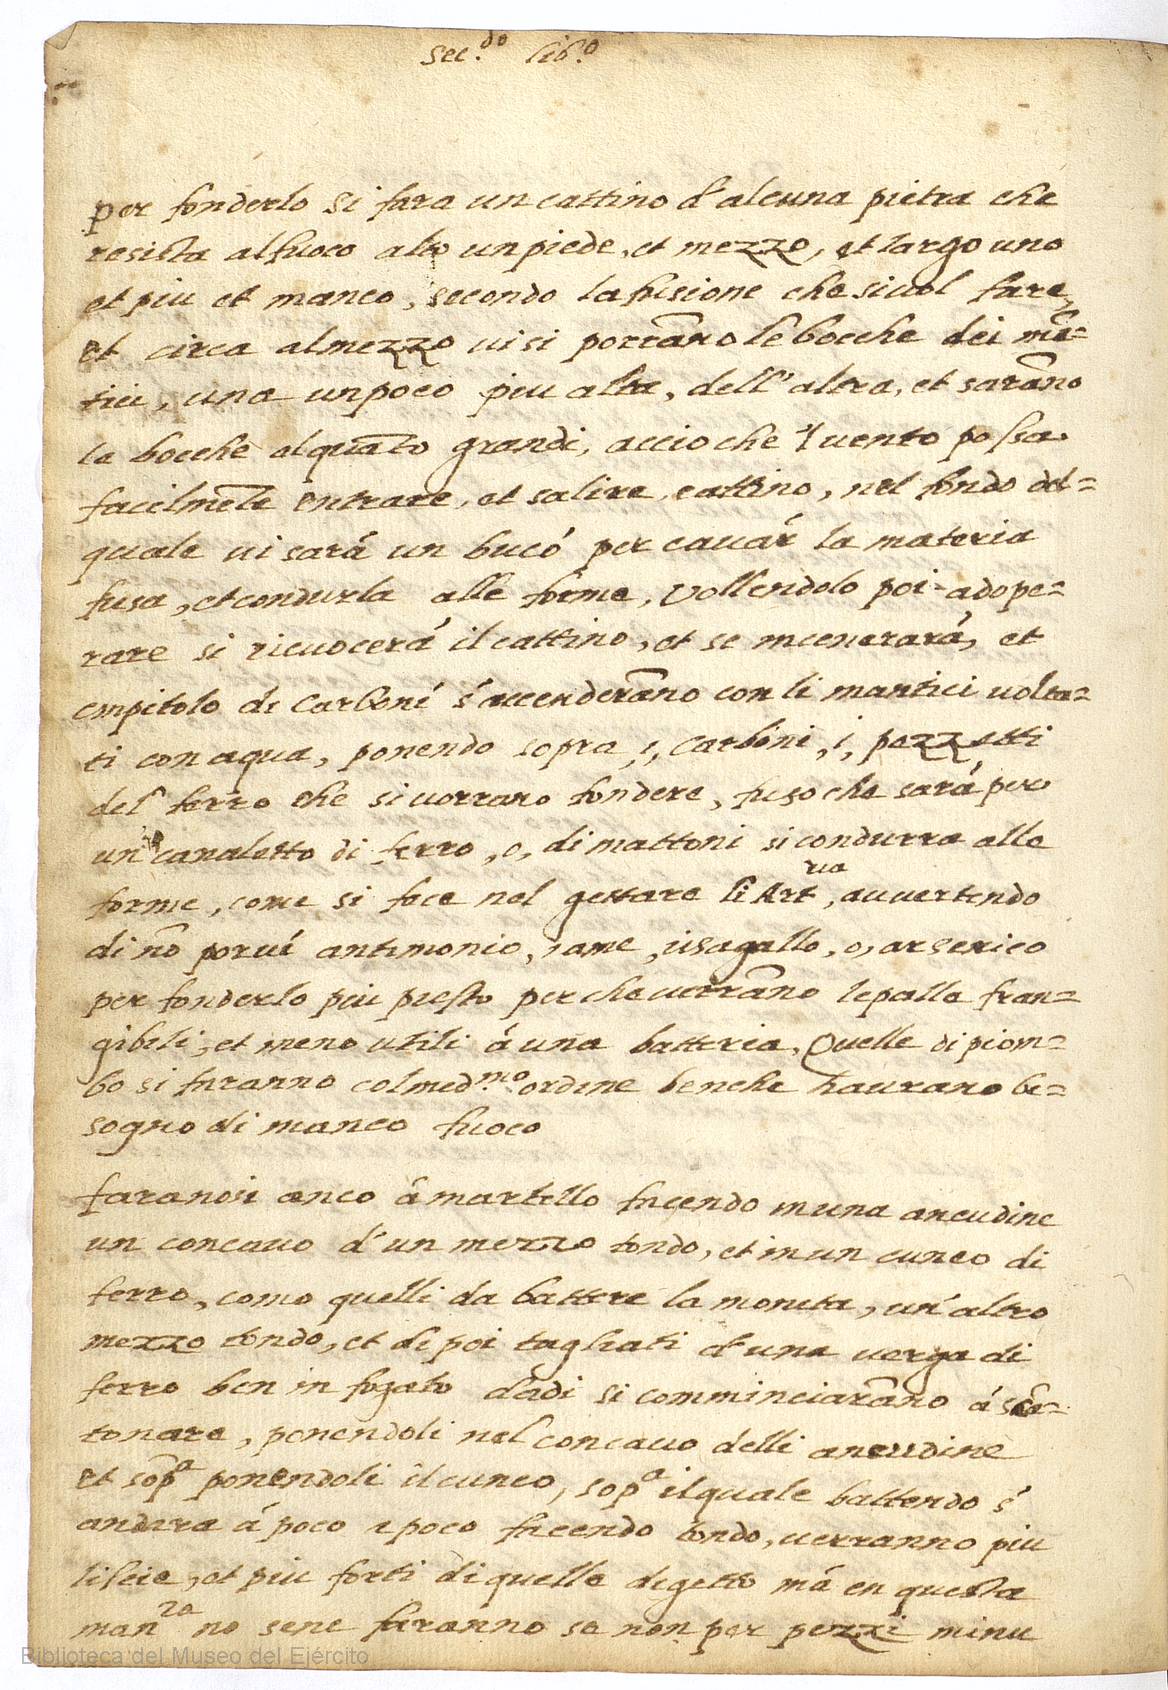 Sec.do lib.o
per fonderlo si fara un cattino d'alcuna pietra che
resista al fuoco alto un piede, et mezzo, et largo uno
et piu et manco, secondo la fusione che si vol fare,
et circa al mezzo vi si porrãno le bocche dei mã=
tici, una un poco piu alta, dell'altra, et sarãno
le bocche alquãto grandi, accio che 'l uento possa
facilmẽte entrare, et salire cattino, nel fondo del=
quale ui sará un bucó per cauár la materia
fusa, et condurla alle forme, Vollendolo poi adope=
rare si ricuocerá il cattino, et se incenerará, et
empitolo di Carboni s'accenderãno con li mantici uolta=
ti con aqua, ponendo sopra i, Carboni, i, pezzetti
del ferro che si uorrano fondere, fuso che sará per
un canaletto di ferro, o, di mattoni si condurra alle
forme, come si fece nel gettare li Artria, auuertendo
di nõ porui antimonio, rame, risagallo, o, arsenico
per fonderlo piu presto per che uerrãno le palle fran=
gibili, et meno utili á una batteria, Quelle di piom=
bo si faranno col med.mo ordine benche haurano bi=
sogno di manco fuoco
faranosi anco á martello facendo in una ancudine
un concauo d'un mezzo tondo, et in un cuneo di
ferro, como quelli da battere la moneta, un'altro
mezzo tondo, et di poi tagliati d'una uerga di
ferro ben infogato dadi si comminciarãno á scã=
tonare, ponendoli nel concauo delli ancudine
et sop.a ponendoli il cuneo, sop.a il quale battendo s'
andara á poco a poco facendo tondo, uerranno piu
liscie, et piu forti di quelle di getto má en questa
man.ra no sene faranno se non per pezzi minu
Biblioteca del Museo del Ejército